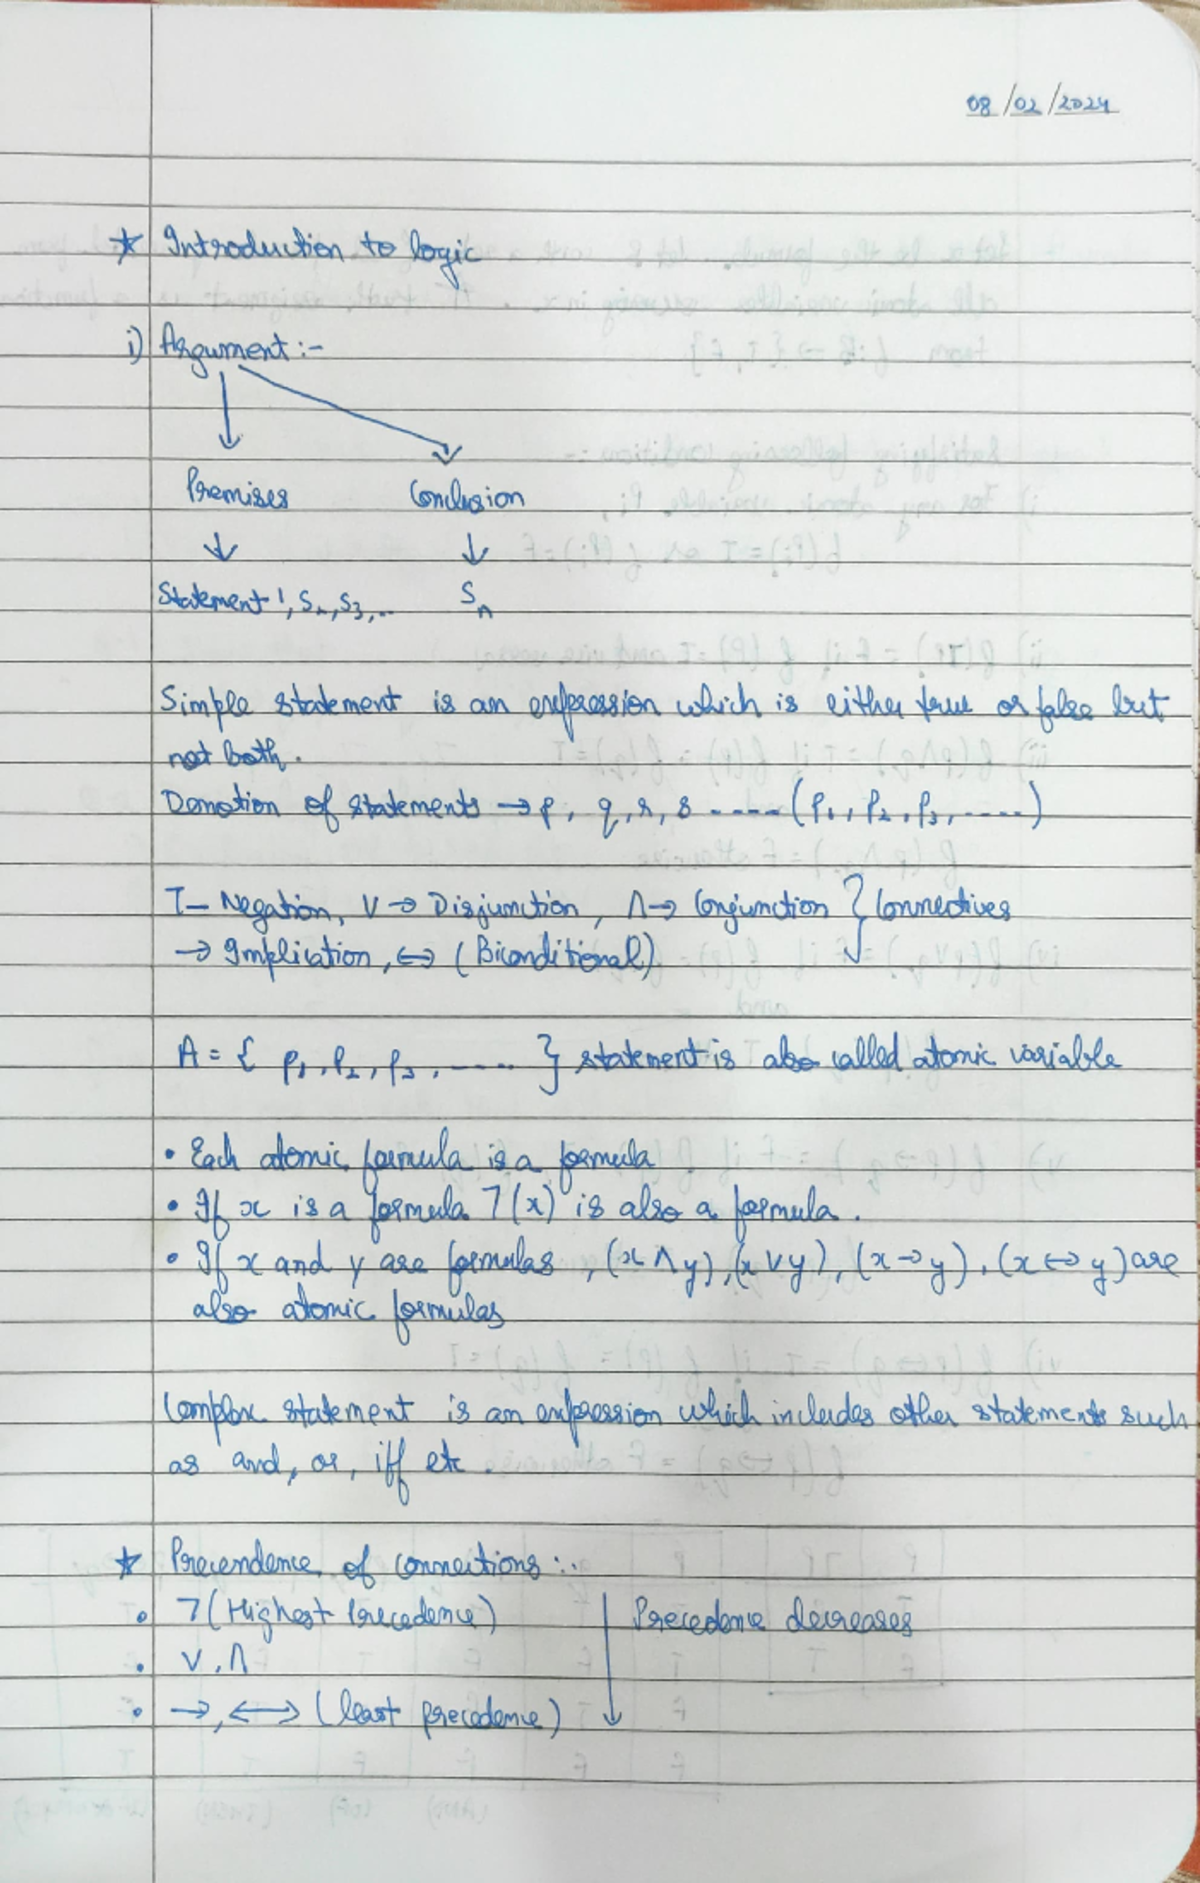 08/02/2024
* Introduction to logic
i) Argument :-
Premises Conclusion
Statement 1, S2, S3, .. Sn
Simple statement is an expression which is either true or false but
not both.
Denotion of statements → p, q, r, s ..... (p1, p2, p3, .....)
T- Negation, V → Disjunction, Λ → Conjunction } Connectives
→ Implication, ↔ (Biconditional)
A = { p1, p2, p3, ..... } statement is also called atomic variable
• Each atomic formula is a formula
• If x is a formula ㄱ(x) is also a formula.
• If x and y are formulas, (x Λ y), (x V y), (x → y), (x ↔ y) are
also atomic formulas
Complex statement is an expression which includes other statements such
as and, or, iff etc.
* Precendence of connections :.
• ㄱ (Highest Precedence) Precedence decreases
• V, Λ
• →, ↔ (least precedence)